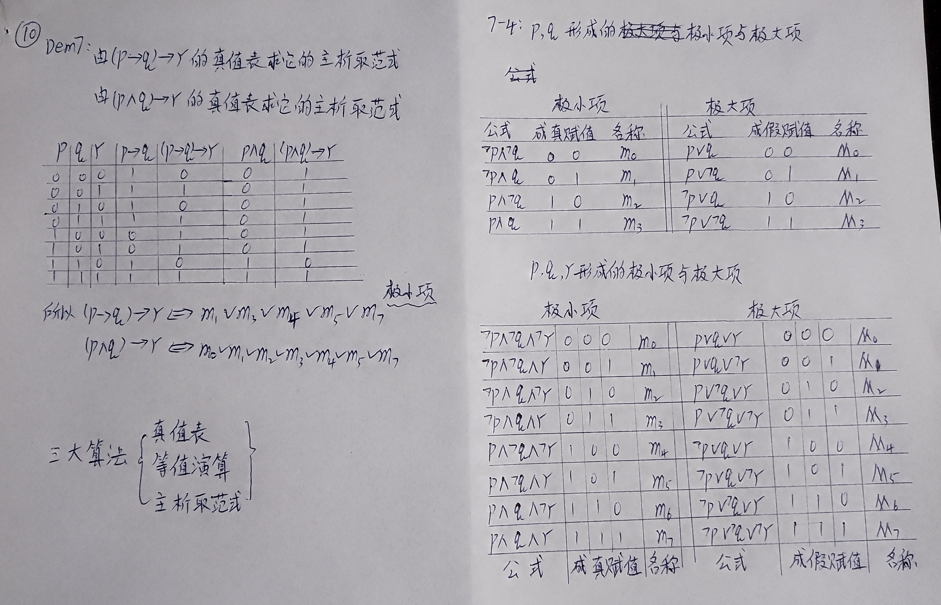 ⑩
Dem7: 由(p→q)→r 的真值表求它的主析取范式
由(p∧q)→r 的真值表求它的主析取范式
p q r p→q (p→q)→r p∧q (p∧q)→r
0 0 0 1 0 0 1
0 0 1 1 1 0 1
0 1 0 1 0 0 1
0 1 1 1 1 0 1
1 0 0 0 1 0 1
1 0 1 0 1 0 1
1 1 0 1 0 1 0
1 1 1 1 1 1 1
极小项
所以 (p→q)→r ⇔ m₁∨m₃∨m₄∨m₅∨m₇
(p∧q)→r ⇔ m₀∨m₁∨m₂∨m₃∨m₄∨m₅∨m₇
三大算法
真值表
等值演算
主析取范式
7-4: p,q 形成的极小项与极大项
公式
极小项 极大项
公式 成真赋值 名称 公式 成假赋值 名称
¬p∧¬q 0 0 m₀ p∨q 0 0 M₀
¬p∧q 0 1 m₁ p∨¬q 0 1 M₁
p∧¬q 1 0 m₂ ¬p∨q 1 0 M₂
p∧q 1 1 m₃ ¬p∨¬q 1 1 M₃
p,q,r形成的极小项与极大项
极小项 极大项
¬p∧¬q∧¬r 0 0 0 m₀ p∨q∨r 0 0 0 M₀
¬p∧¬q∧r 0 0 1 m₁ p∨q∨¬r 0 0 1 M₁
¬p∧q∧¬r 0 1 0 m₂ p∨¬q∨r 0 1 0 M₂
¬p∧q∧r 0 1 1 m₃ p∨¬q∨¬r 0 1 1 M₃
p∧¬q∧¬r 1 0 0 m₄ ¬p∨q∨r 1 0 0 M₄
p∧¬q∧r 1 0 1 m₅ ¬p∨q∨¬r 1 0 1 M₅
p∧q∧¬r 1 1 0 m₆ ¬p∨¬q∨r 1 1 0 M₆
p∧q∧r 1 1 1 m₇ ¬p∨¬q∨¬r 1 1 1 M₇
公式 成真赋值 名称 公式 成假赋值 名称